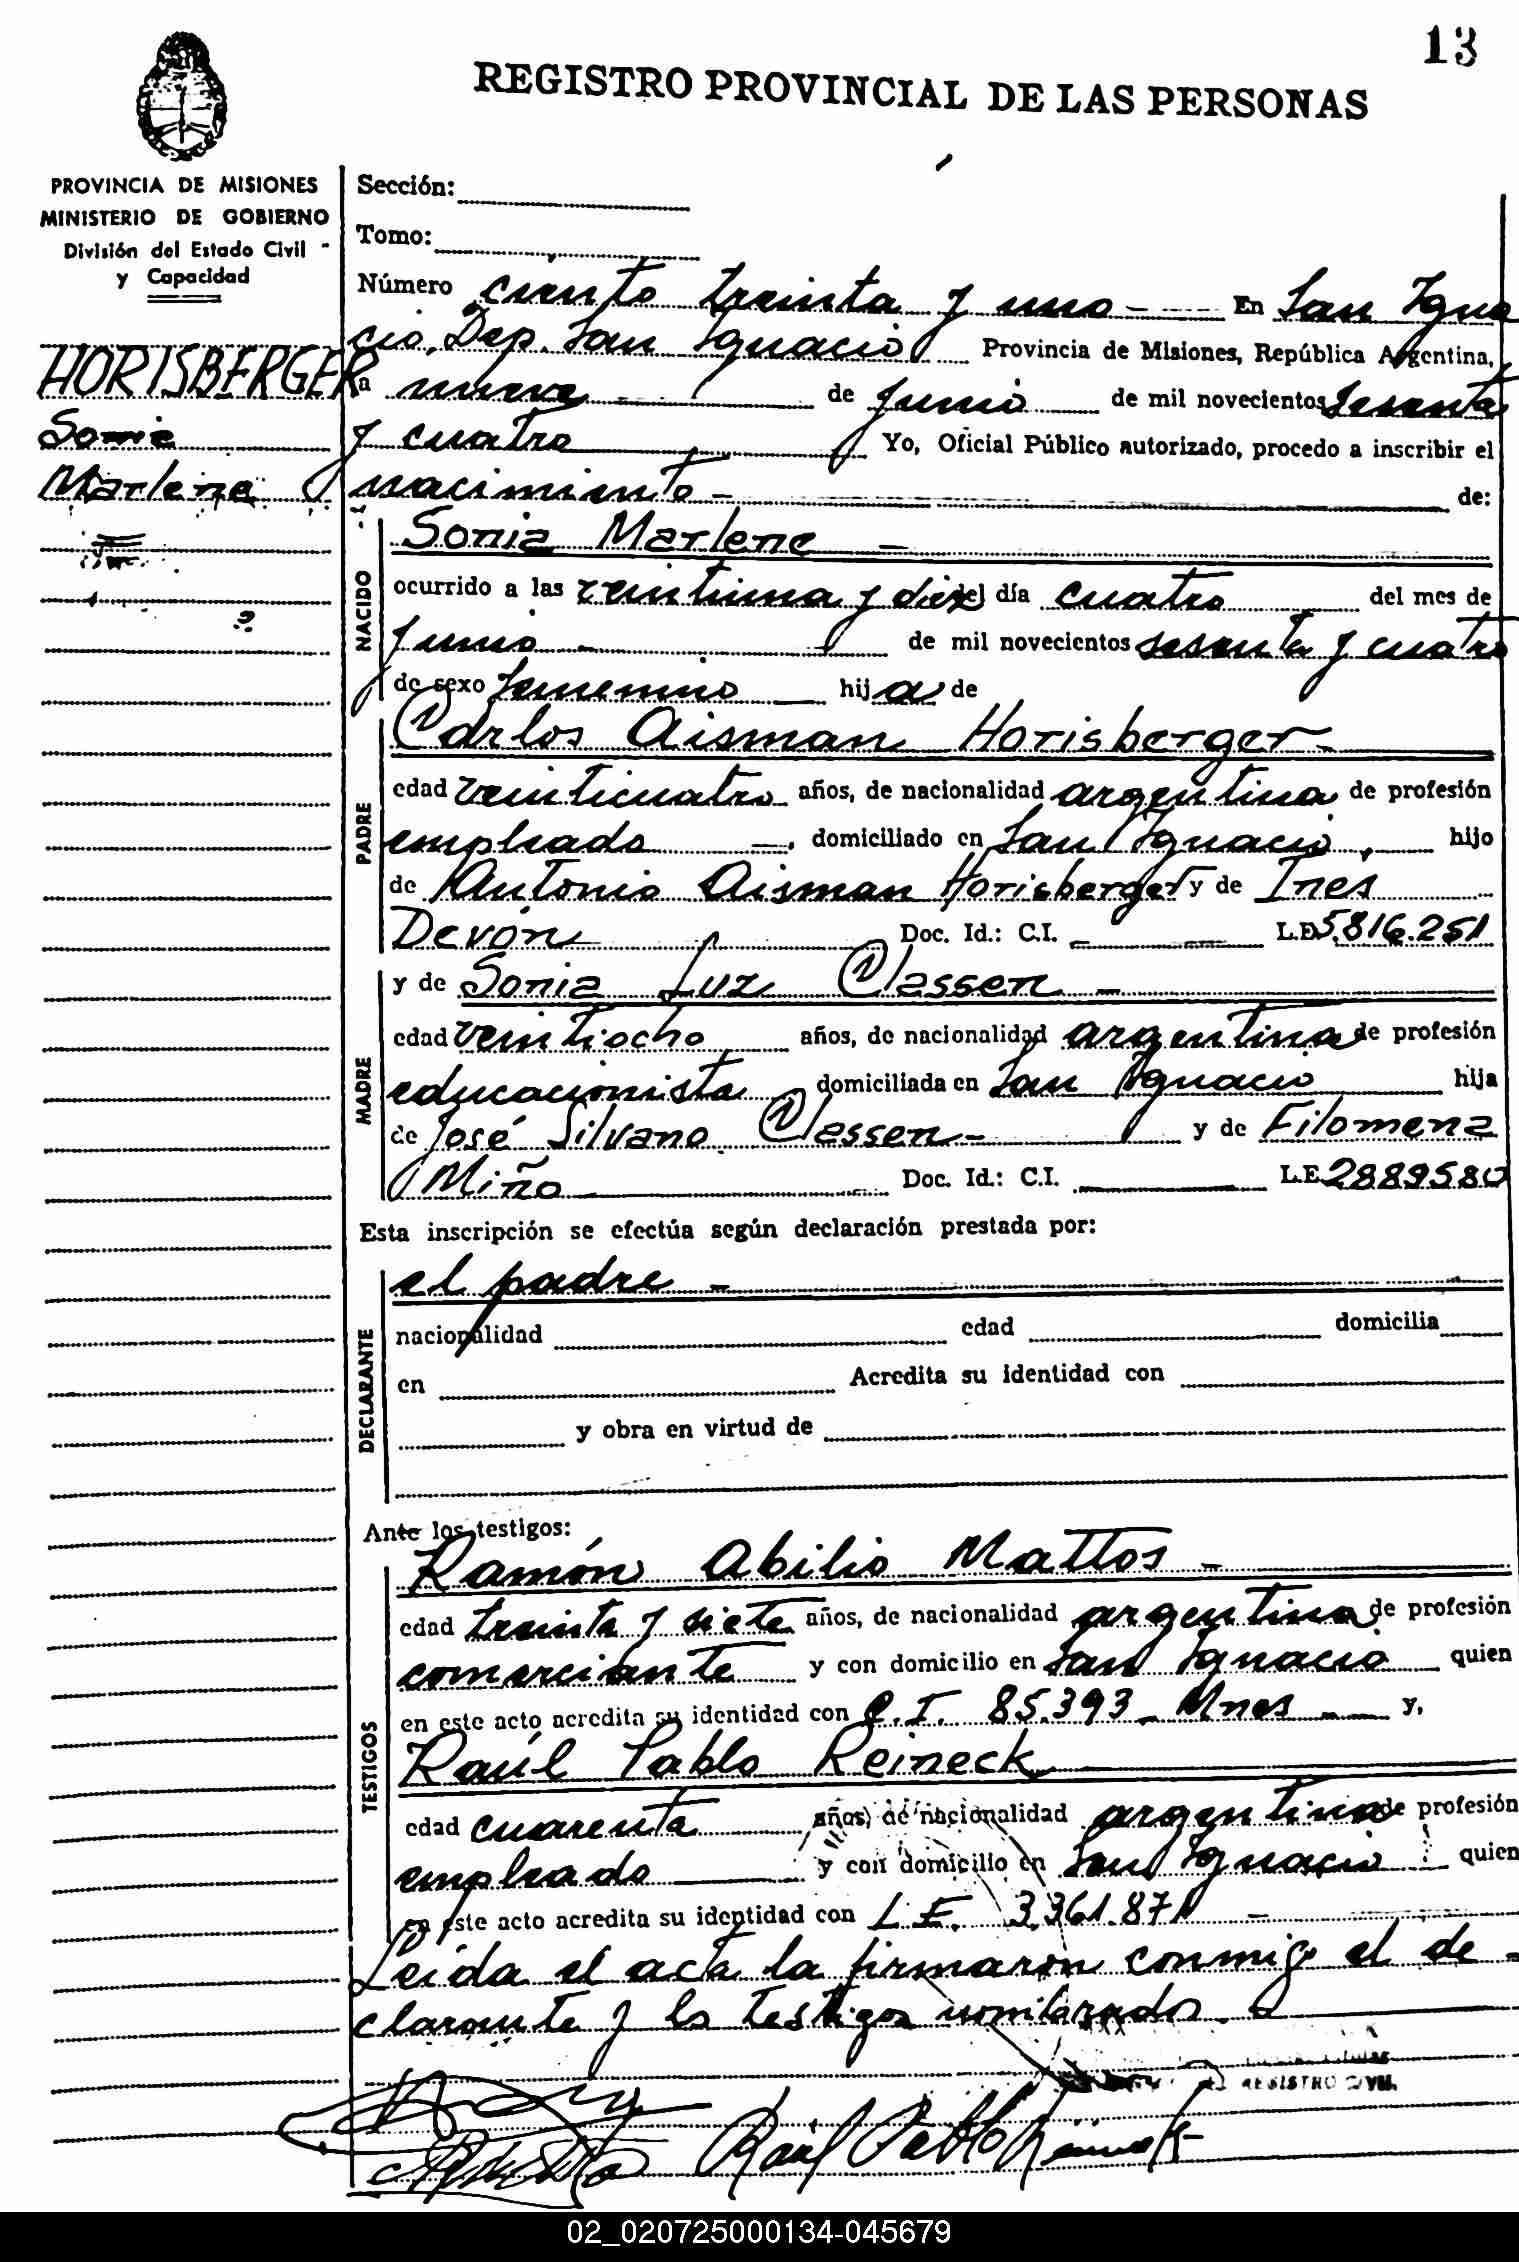 13
REGISTRO PROVINCIAL DE LAS PERSONAS
PROVINCIA DE MISIONES
MINISTERIO DE GOBIERNO
División del Estado Civil
y Capacidad
HORISBERGER
Sonia
Marlene
Sección:
Tomo:
Número ciento treinta y uno - En San Igna
cio, Dep. San Ignacio Provincia de Misiones, República Argentina,
a nueve de junio de mil novecientos sesenta
y cuatro Yo, Oficial Público autorizado, procedo a inscribir el
nacimiento - de:
NACIDO
Sonia Marlene -
ocurrido a las veintiuna y diez del día cuatro del mes de
junio - de mil novecientos sesenta y cuatro
de sexo femenino hija de
PADRE
Carlos Aisman Horisberger -
edad veinticuatro años, de nacionalidad argentina de profesión
empleado -, domiciliado en San Ignacio, hijo
de Antonio Aisman Horisberger y de Inés
Devón Doc. Id.: C.I. L.E. 5.816.251
MADRE
y de Sonia Luz Classen -
edad veintiocho años, de nacionalidad argentina de profesión
educacionista domiciliada en San Ignacio hija
de José Silvano Classen - y de Filomena
Miño Doc. Id.: C.I. L.E. 2889580
Esta inscripción se efectúa según declaración prestada por:
DECLARANTE
el padre -
nacionalidad edad domicilia
en Acredita su identidad con
y obra en virtud de
Ante los testigos:
TESTIGOS
Ramón Abilio Mattos -
edad treinta y siete años, de nacionalidad argentina de profesión
comerciante y con domicilio en San Ignacio quien
en este acto acredita su identidad con C.I. 85.393 - Mnes - y,
Raúl Pablo Reineck
edad cuarenta años, de nacionalidad argentina de profesión
empleado y con domicilio en San Ignacio quien
en este acto acredita su identidad con L.E. 3.361.871 -
Leída el acta la firmaron conmigo el de -
clarante y los testigos nombrados.
REGISTRO CIVIL
Raúl Pablo Reineck
02_020725000134-045679